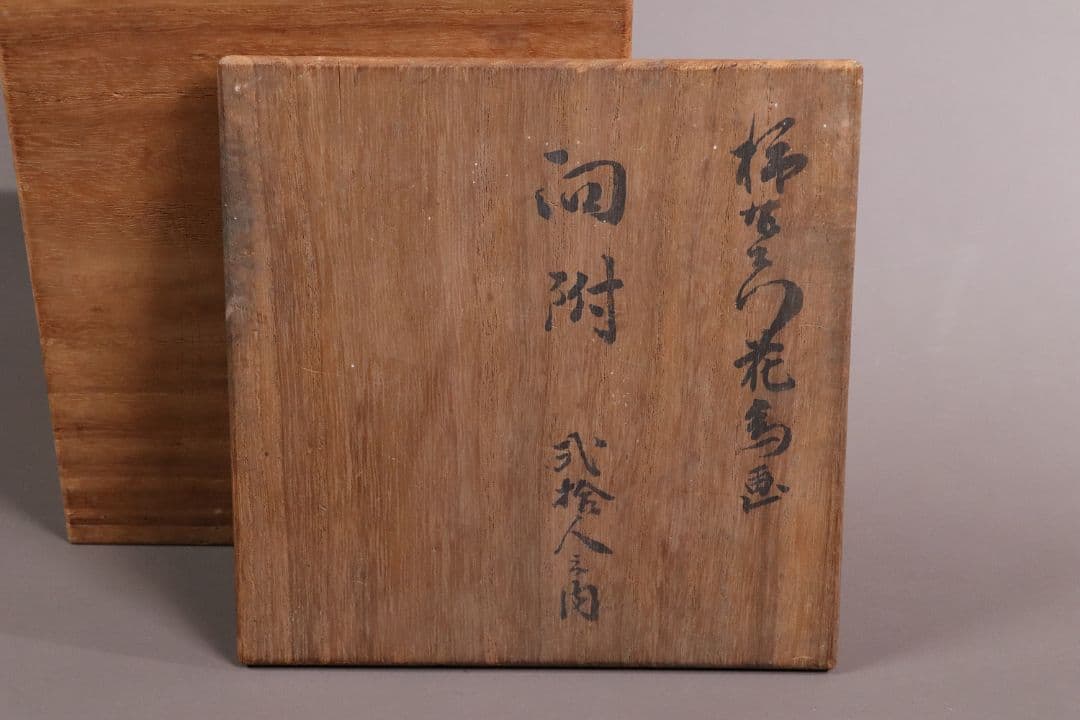 柿右衛門花鳥画
向附 弐拾人之内